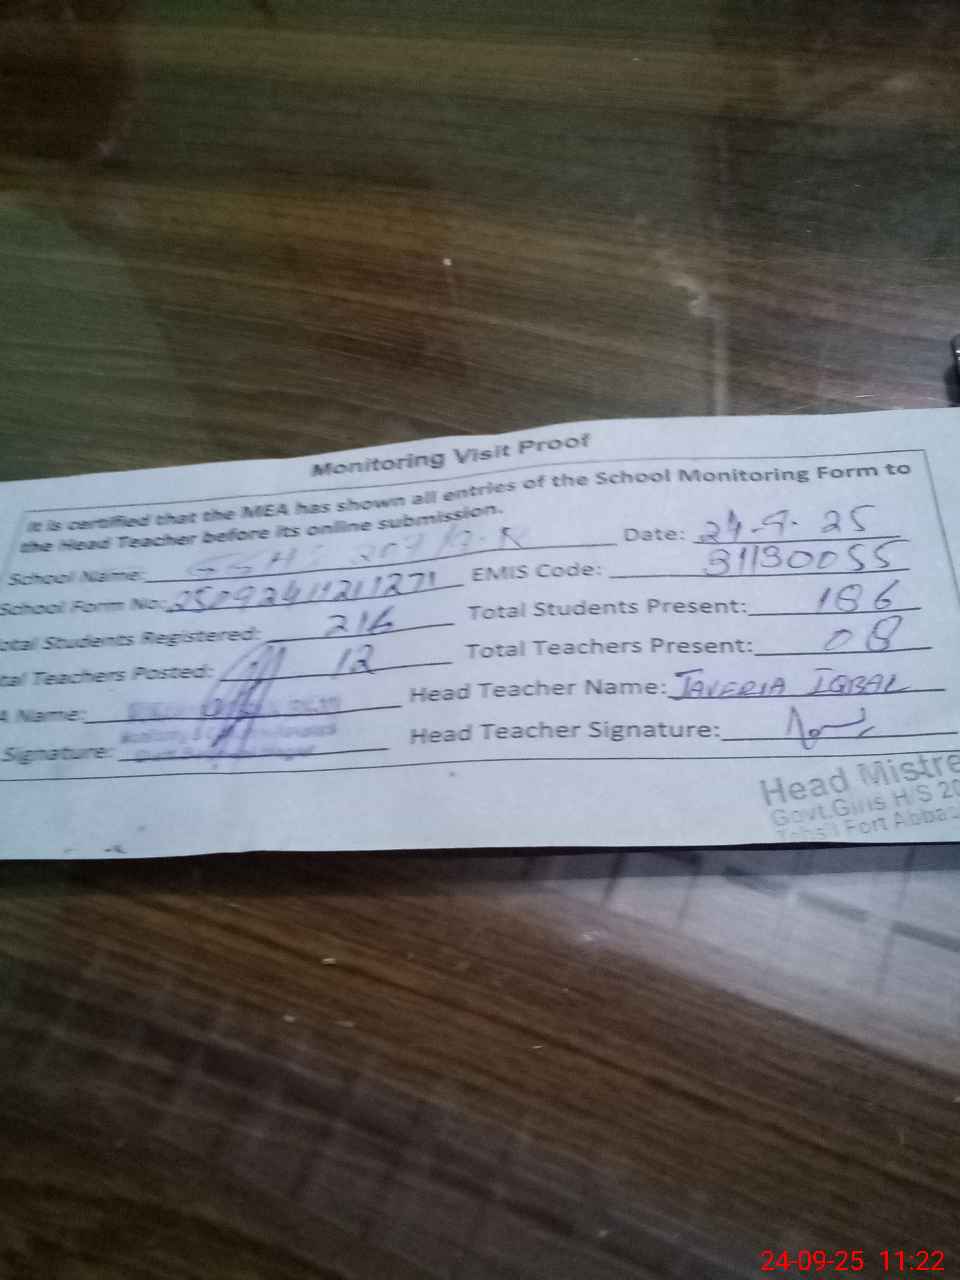 Monitoring Visit Proof
It is certified that the MEA has shown all entries of the School Monitoring Form to
the Head Teacher before its online submission.
School Name: GGHS 209/9.R Date: 24.9.25
School Form No: 25092411211271 EMIS Code: 31130055
otal Students Registered: 216 Total Students Present: 186
tal Teachers Posted: 12 Total Teachers Present: 08
A Name: Head Teacher Name: JAVERIA IQBAL
Signature: Head Teacher Signature:
Head Mistre
Govt.Girls H/S 20
Tehsil Fort Abbas
24-09-25 11:22